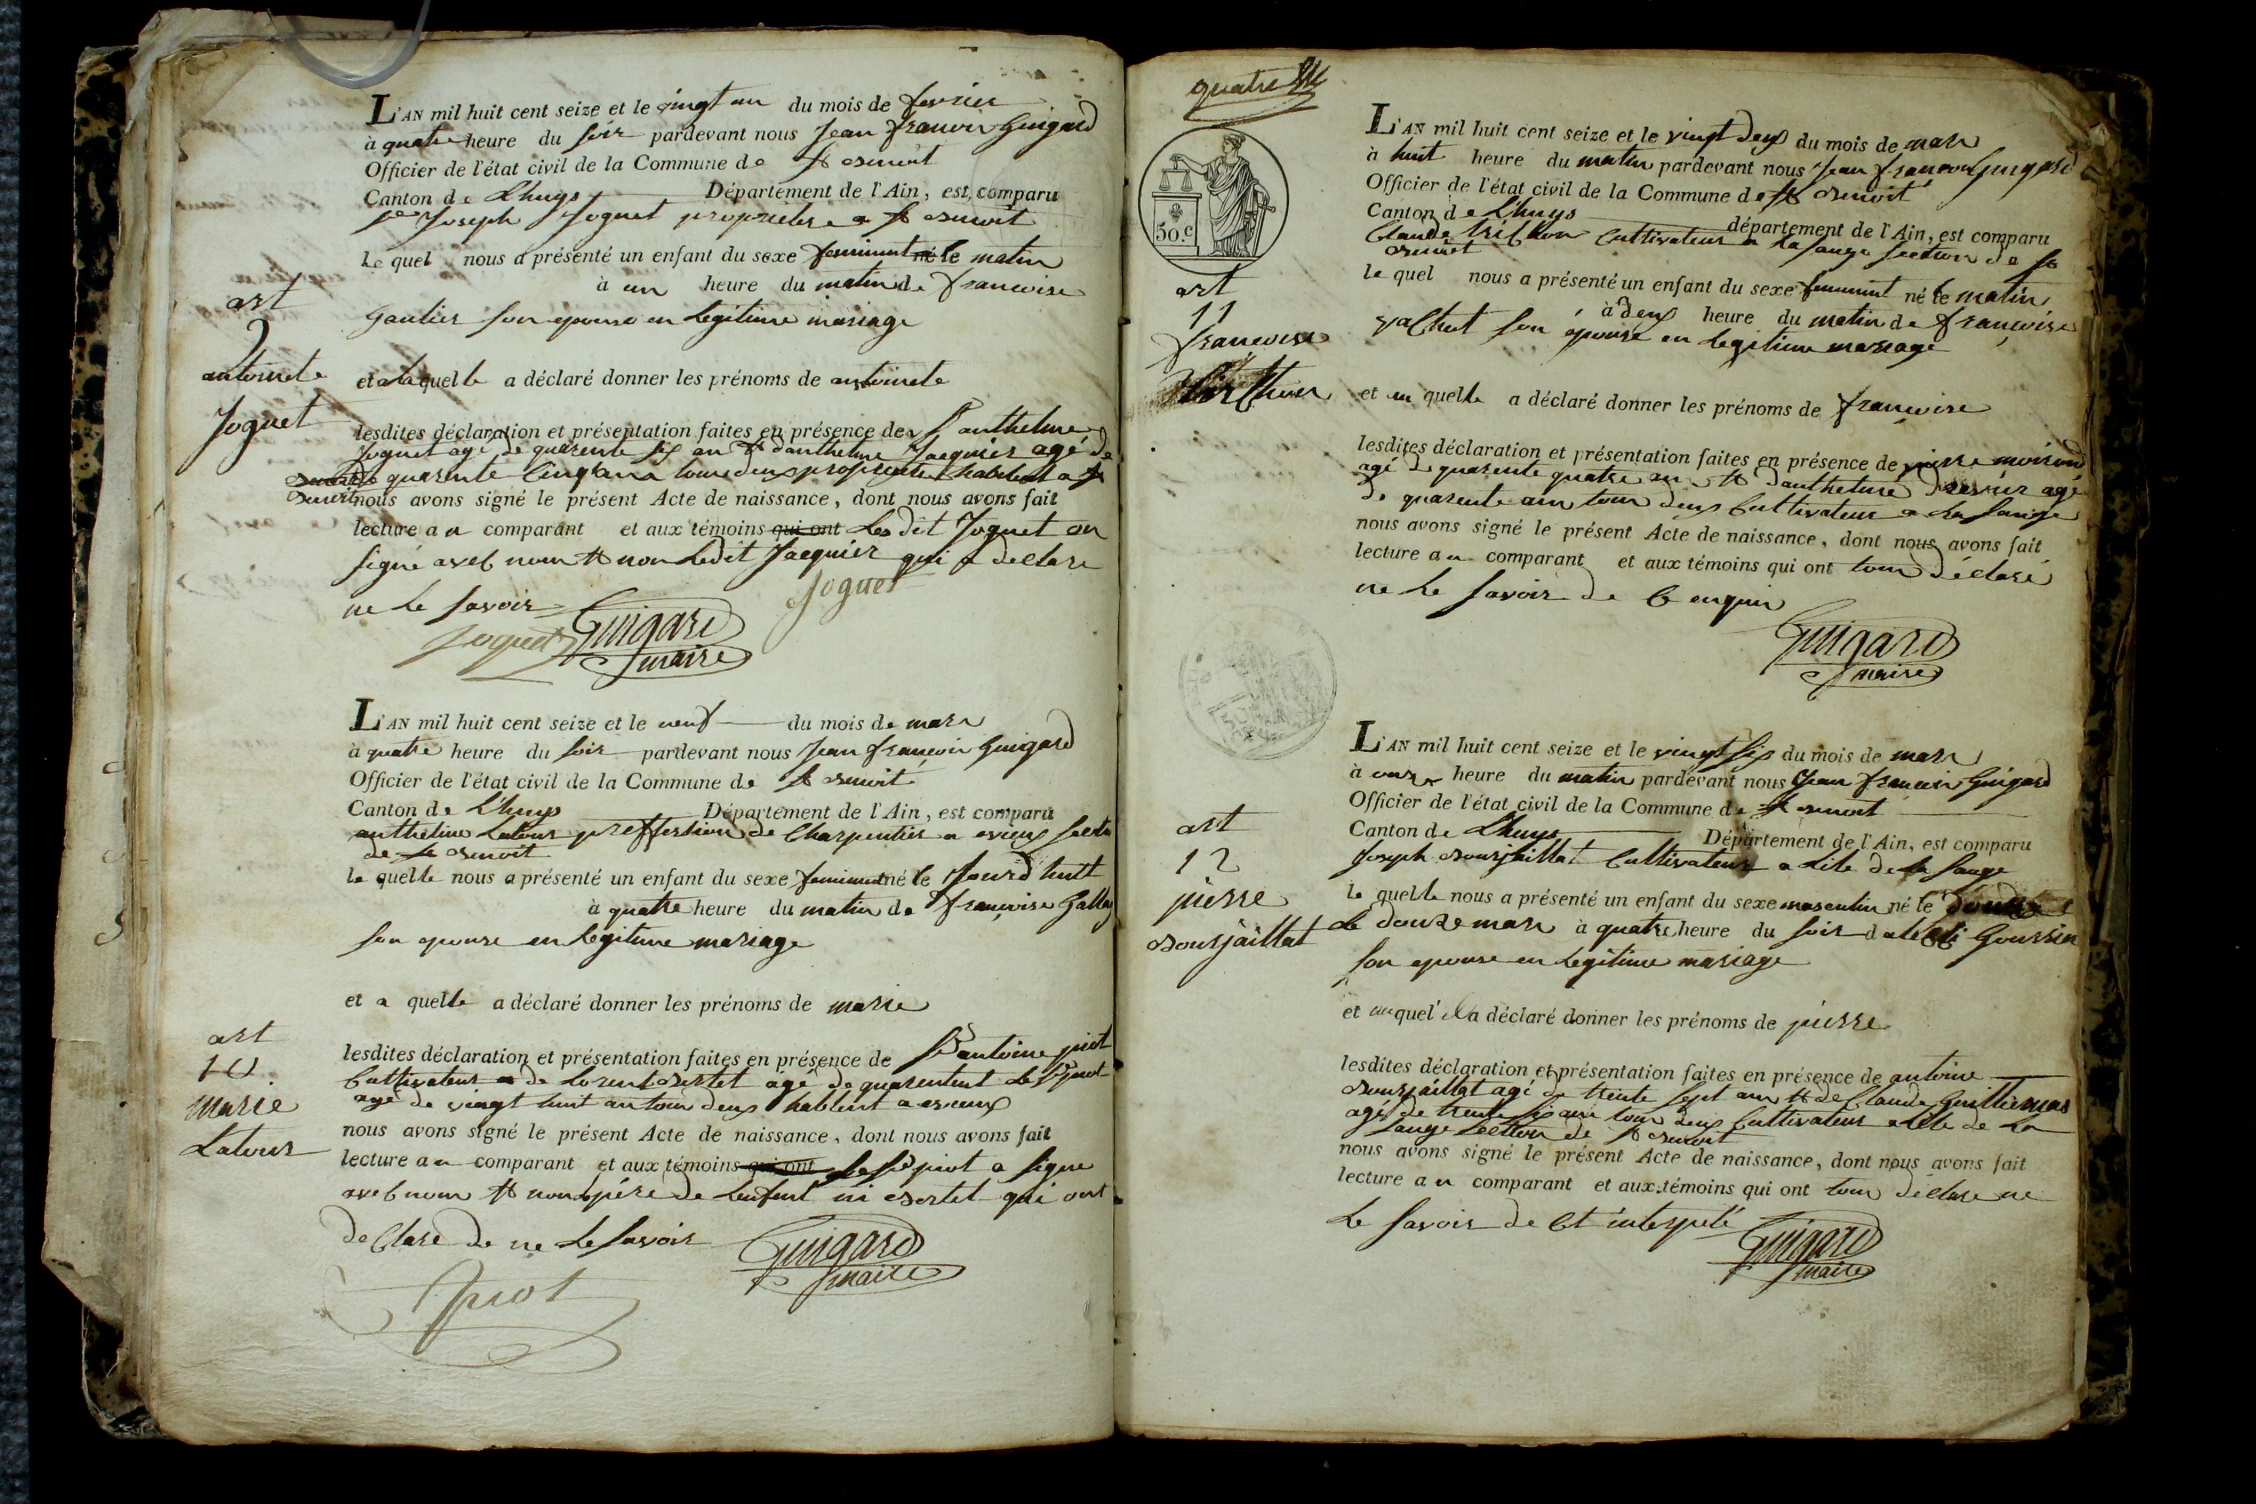 L'AN mil huit cent seize et le vingt un du mois de fevrier
à quatre heure du soir pardevant nous Jean francois Guigard
Officier de l'état civil de la Commune de St benoit
Canton de Lhuys Département de l'Ain, est comparu
sr Joseph Joguet proprietere a St benoit
le quel nous a présenté un enfant du sexe feminint né le matin
à un heure du matin de francoise
gautier son epouse en legitime mariage
art
9
antoinete
Joguet
et a laquelle a déclaré donner les prénoms de antoinete
lesdites déclaration et présentation faites en présence de sr anthelme
Joguet agé de quarente six an et danthelme Jacquier agé de
quarente cinq ans tous deux proprietere habitent a St
benoit nous avons signé le présent Acte de naissance, dont nous avons fait
lecture au comparant et aux témoins qui ont les dit Joguet on
signé avec nous et non ledit Jacquier qui a declare
ne le savoir
Joguet
Joguet
Guigard
maire
L'AN mil huit cent seize et le neuf du mois de mars
à quatre heure du soir pardevant nous Jean françois Guigard
Officier de l'état civil de la Commune de St benoit
Canton de Lhuys Département de l'Ain, est comparu
anthelme Latour proffession de charpentier a evieux section
de St benoit
le quelle nous a présenté un enfant du sexe feminint né le Jourd huit
à quatre heure du matin de françoise
son epouse en legitime mariage
et a quelle a déclaré donner les prénoms de marie
art
10
marie
Latour
lesdites déclaration et présentation faites en présence de sr antoine piot
cultivateur de Lorent bertet agé de quarentent le sr piot
agé de vingt huit an tous deux habitent a evieux
nous avons signé le présent Acte de naissance, dont nous avons fait
lecture au comparant et aux témoins qui ont le sr piot a signe
avec nous et non le père de lenfent ni bertet qui ont
declaré de ne le savoir
Guigard
maire
piot
quatre
50.c
L'AN mil huit cent seize et le vingt deux du mois de mars
à huit heure du matin pardevant nous Jean francois Guigard
Officier de l'état civil de la Commune de St benoit
Canton de Lhuys département de l'Ain, est comparu
Claude cultivateur a la sauge section de St
benoit
le quel nous a présenté un enfant du sexe feminint né le matin
à deux heure du matin de françoise
son épouse en legitime mariage
art
11
francoise
et au quelle a déclaré donner les prénoms de françoise
lesdites déclaration et présentation faites en présence de pierre
agé de quarente quatre an et danthelme agé
de quarente ans tous deux cultivateur a la sauge
nous avons signé le présent Acte de naissance, dont nous avons fait
lecture au comparant et aux témoins qui ont tous déclaré
ne le savoir de ce enquis
Guigard
maire
L'AN mil huit cent seize et le vingt six du mois de mars
à onze heure du matin pardevant nous Jean francois Guigard
Officier de l'état civil de la Commune de St benoit
Canton de Lhuys Département de l'Ain, est comparu
Joseph bourjaillat cultivateur a lile de la sauge
le quelle nous a présenté un enfant du sexe masculin né le
le douze mars à quatre heure du soir
son epouse en legitime mariage
art
12
pierre
bourjaillat
et au quel a déclaré donner les prénoms de pierre
lesdites déclaration et présentation faites en présence de antoine
bourjaillat agé de trente sept ans et de Claude
agé de trente six ans tous deux cultivateur a lile de la
sauge section de St benoit
nous avons signé le présent Acte de naissance, dont nous avons fait
lecture au comparant et aux témoins qui ont tous déclare ne
le savoir de ct interpelé
Guigard
maire